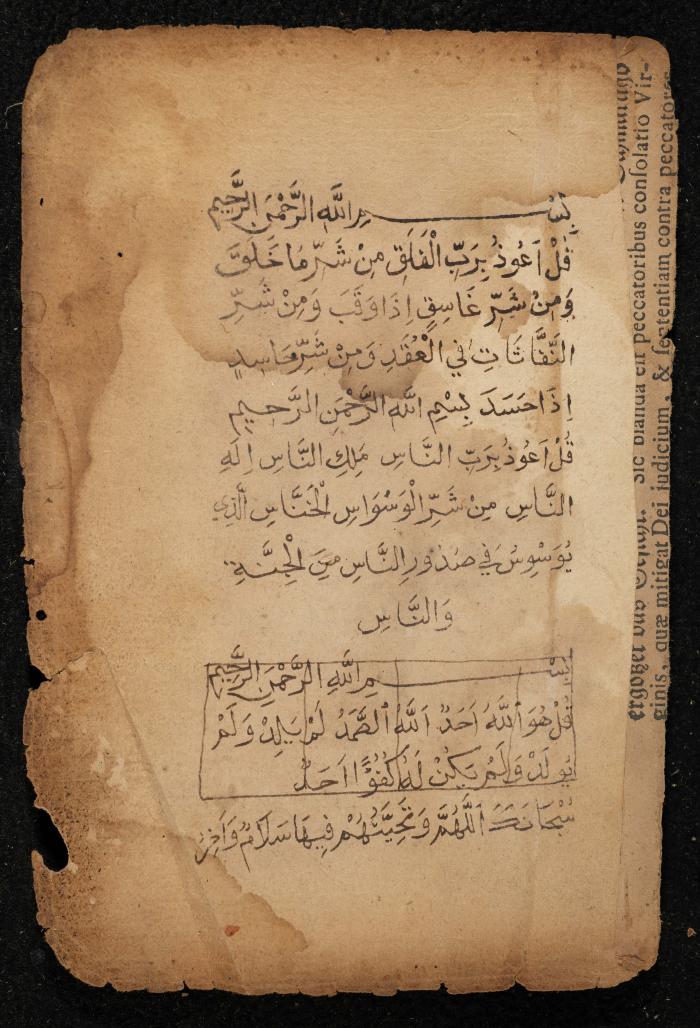 بِسْمِ اللّٰهِ الرَّحْمٰنِ الرَّحِيمِ
قُلْ اَعُوذُ بِرَبِّ الْفَلَقِ مِنْ شَرِّ مَا خَلَقَ
وَمِنْ شَرِّ غَاسِقٍ اِذَا وَقَبَ وَمِنْ شَرِّ
النَّفَّاثَاتِ فِي الْعُقَدِ وَمِنْ شَرِّ حَاسِدٍ
اِذَا حَسَدَ بِسْمِ اللّٰهِ الرَّحْمٰنِ الرَّحِيمِ
قُلْ اَعُوذُ بِرَبِّ النَّاسِ مَلِكِ النَّاسِ اِلٰهِ
النَّاسِ مِنْ شَرِّ الْوَسْوَاسِ الْخَنَّاسِ الَّذِي
يُوَسْوِسُ فِي صُدُورِ النَّاسِ مِنَ الْجِنَّةِ
وَالنَّاسِ
بِسْمِ اللّٰهِ الرَّحْمٰنِ الرَّحِيمِ
قُلْ هُوَ اللّٰهُ اَحَدٌ اَللّٰهُ الصَّمَدُ لَمْ يَلِدْ وَلَمْ
يُولَدْ وَلَمْ يَكُنْ لَهُ كُفُوًا اَحَدٌ
سُبْحَانَكَ اللّٰهُمَّ وَتَحِيَّتُهُمْ فِيهَا سَلَامٌ وَآخِرُ
Sic blanda eſt peccatoribus conſolatio Vir-
ginis, quæ mitigat Dei iudicium, & ſententiam contra peccatores